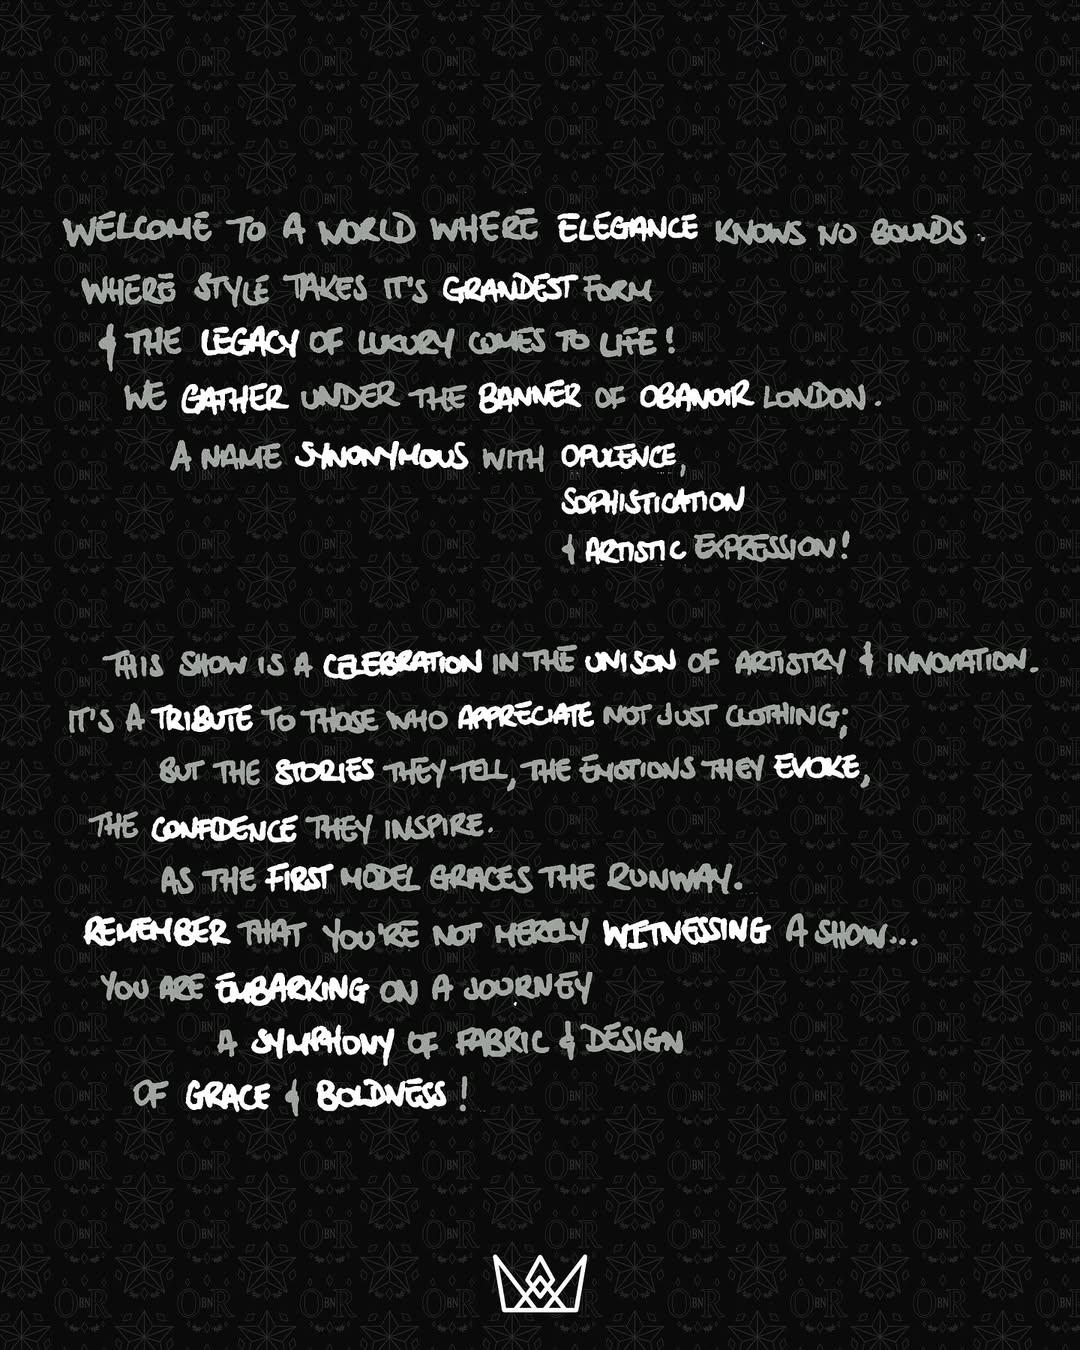 WELCOME TO A WORLD WHERE ELEGANCE KNOWS NO BOUNDS.
WHERE STYLE TAKES IT'S GRANDEST FORM
& THE LEGACY OF LUXURY COMES TO LIFE!
WE GATHER UNDER THE BANNER OF OBANOIR LONDON.
A NAME SYNONYMOUS WITH OPULENCE,
SOPHISTICATION
& ARTISTIC EXPRESSION!
THIS SHOW IS A CELEBRATION IN THE UNISON OF ARTISTRY & INNOVATION.
IT'S A TRIBUTE TO THOSE WHO APPRECIATE NOT JUST CLOTHING;
BUT THE STORIES THEY TELL, THE EMOTIONS THEY EVOKE,
THE CONFIDENCE THEY INSPIRE.
AS THE FIRST MODEL GRACES THE RUNWAY.
REMEMBER THAT YOU'RE NOT MERELY WITNESSING A SHOW...
YOU ARE EMBARKING ON A JOURNEY
A SYMPHONY OF FABRIC & DESIGN
OF GRACE & BOLDNESS!